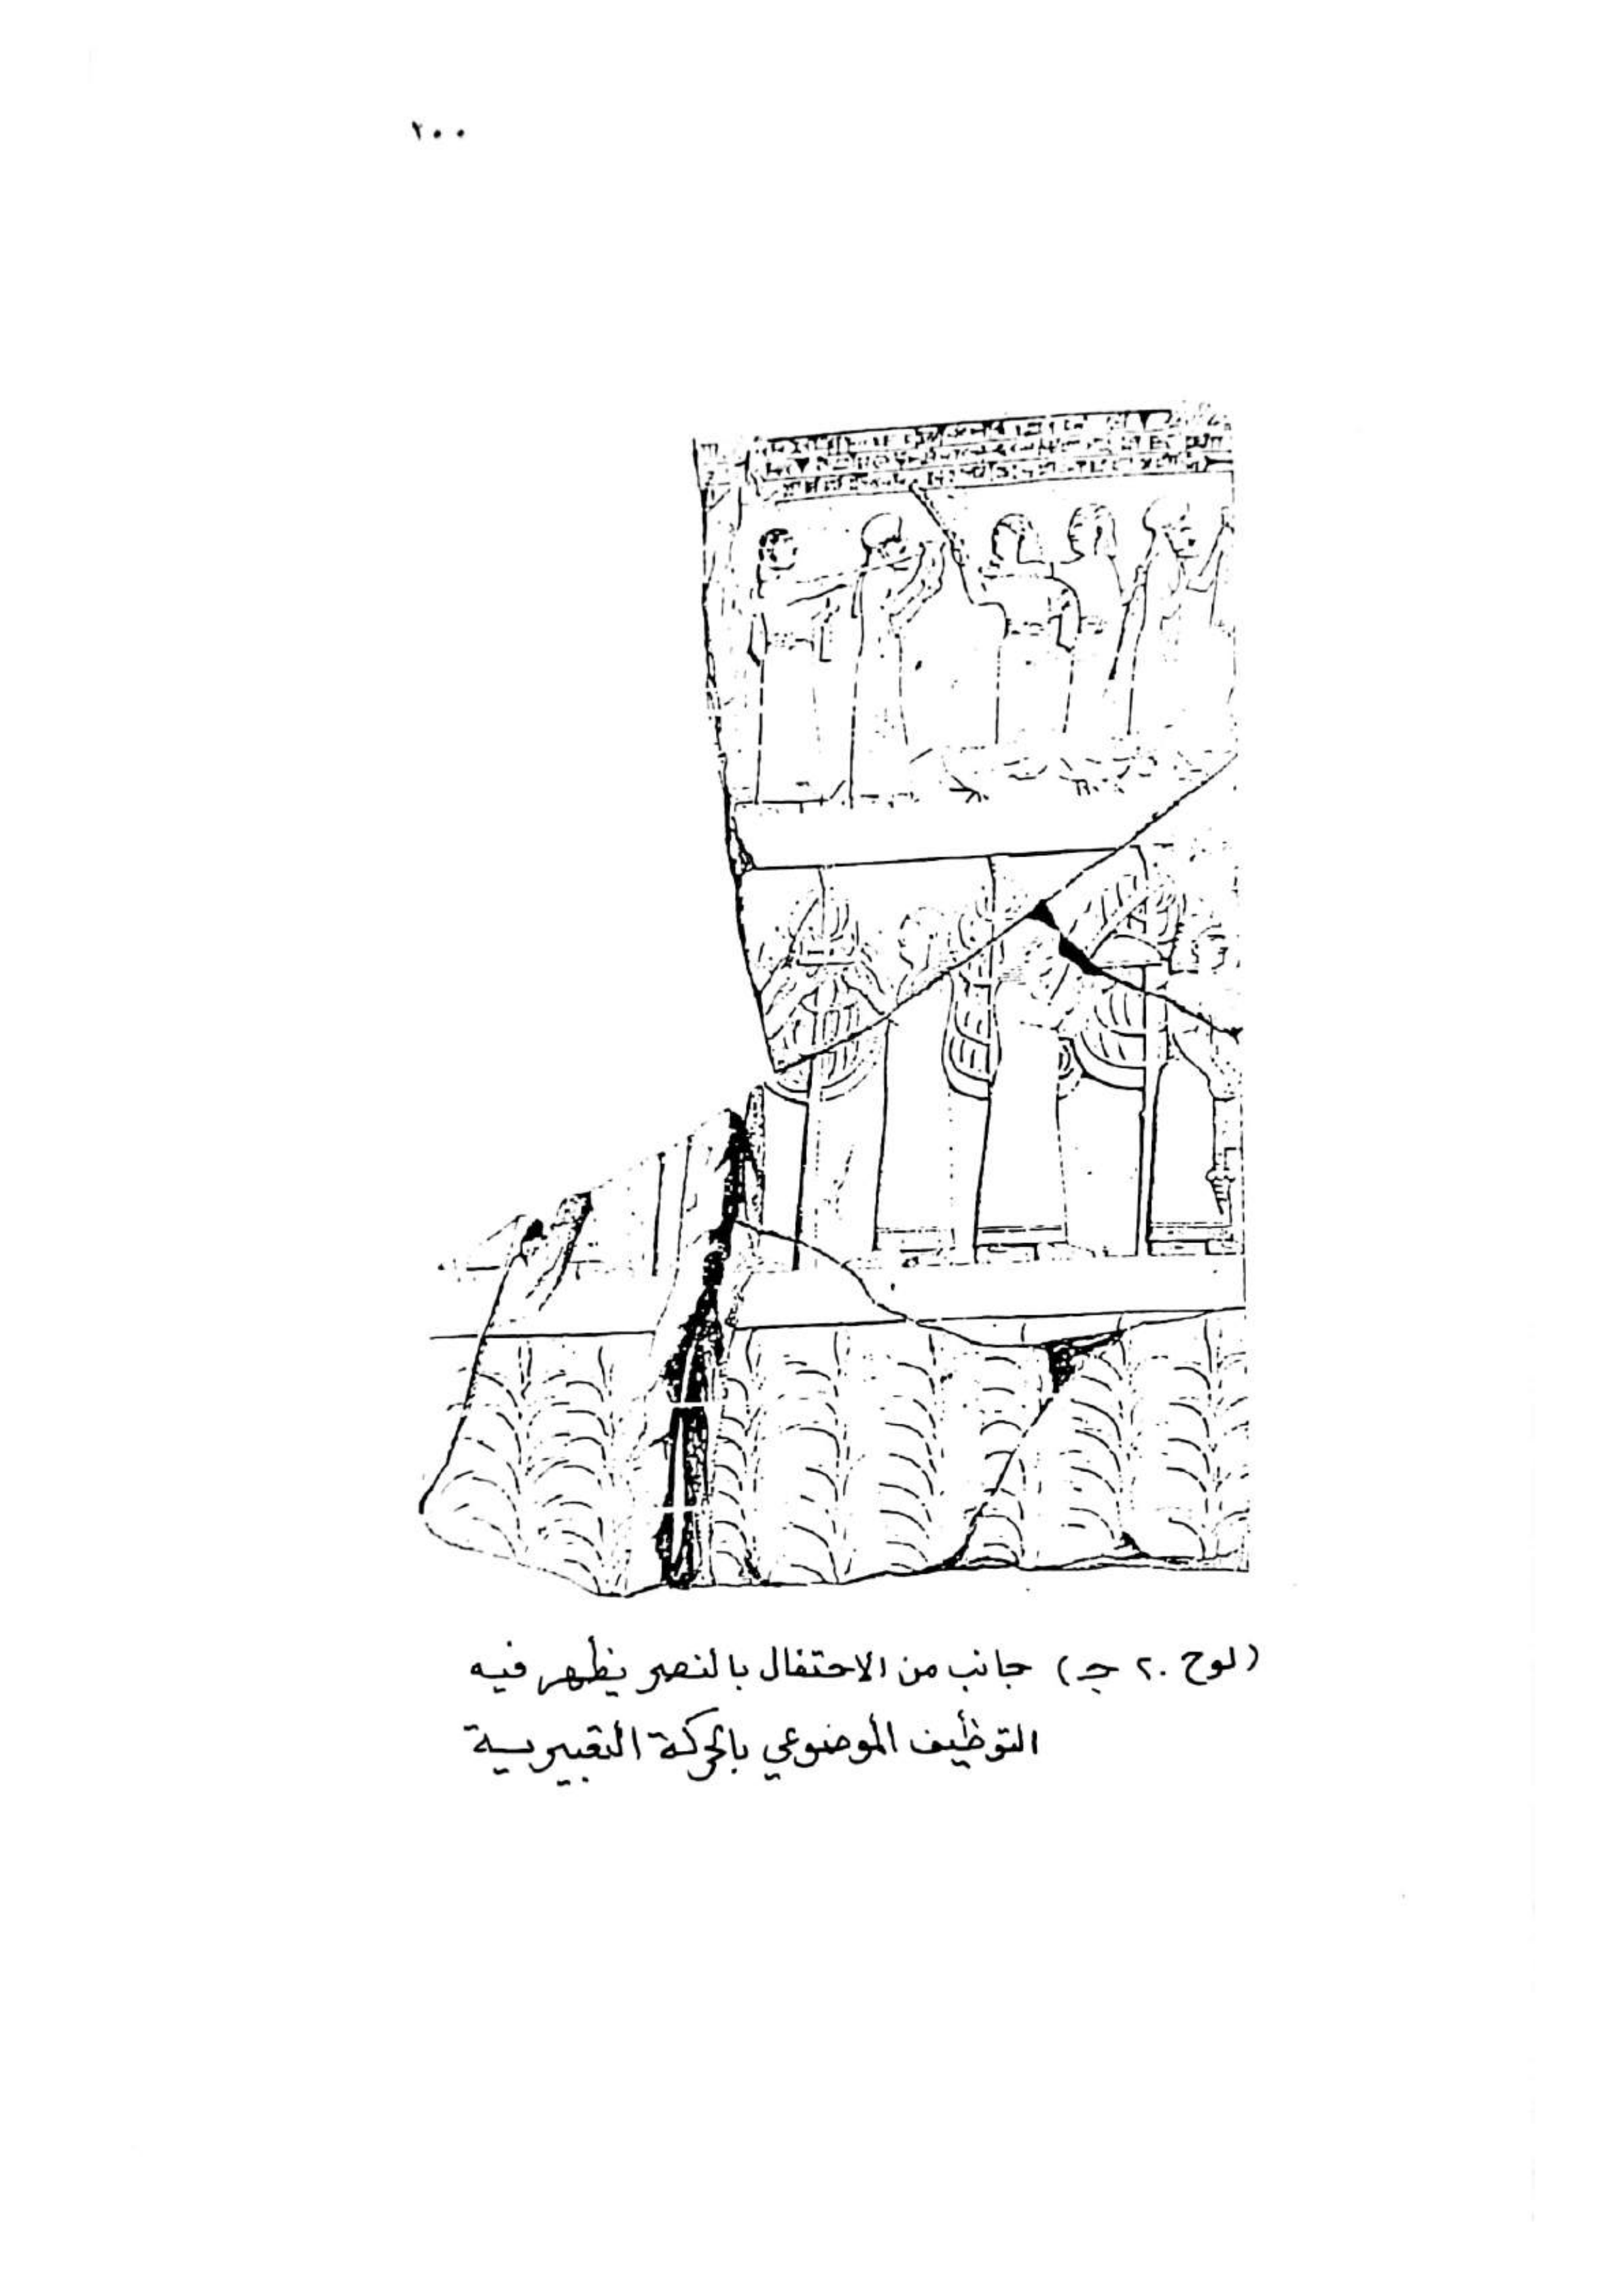 ٢٠٠
(لوح ٢٠ جـ) جانب من الاحتفال بالنصر يظهر فيه
التوظيف الموضوعي بالحركة التعبيرية